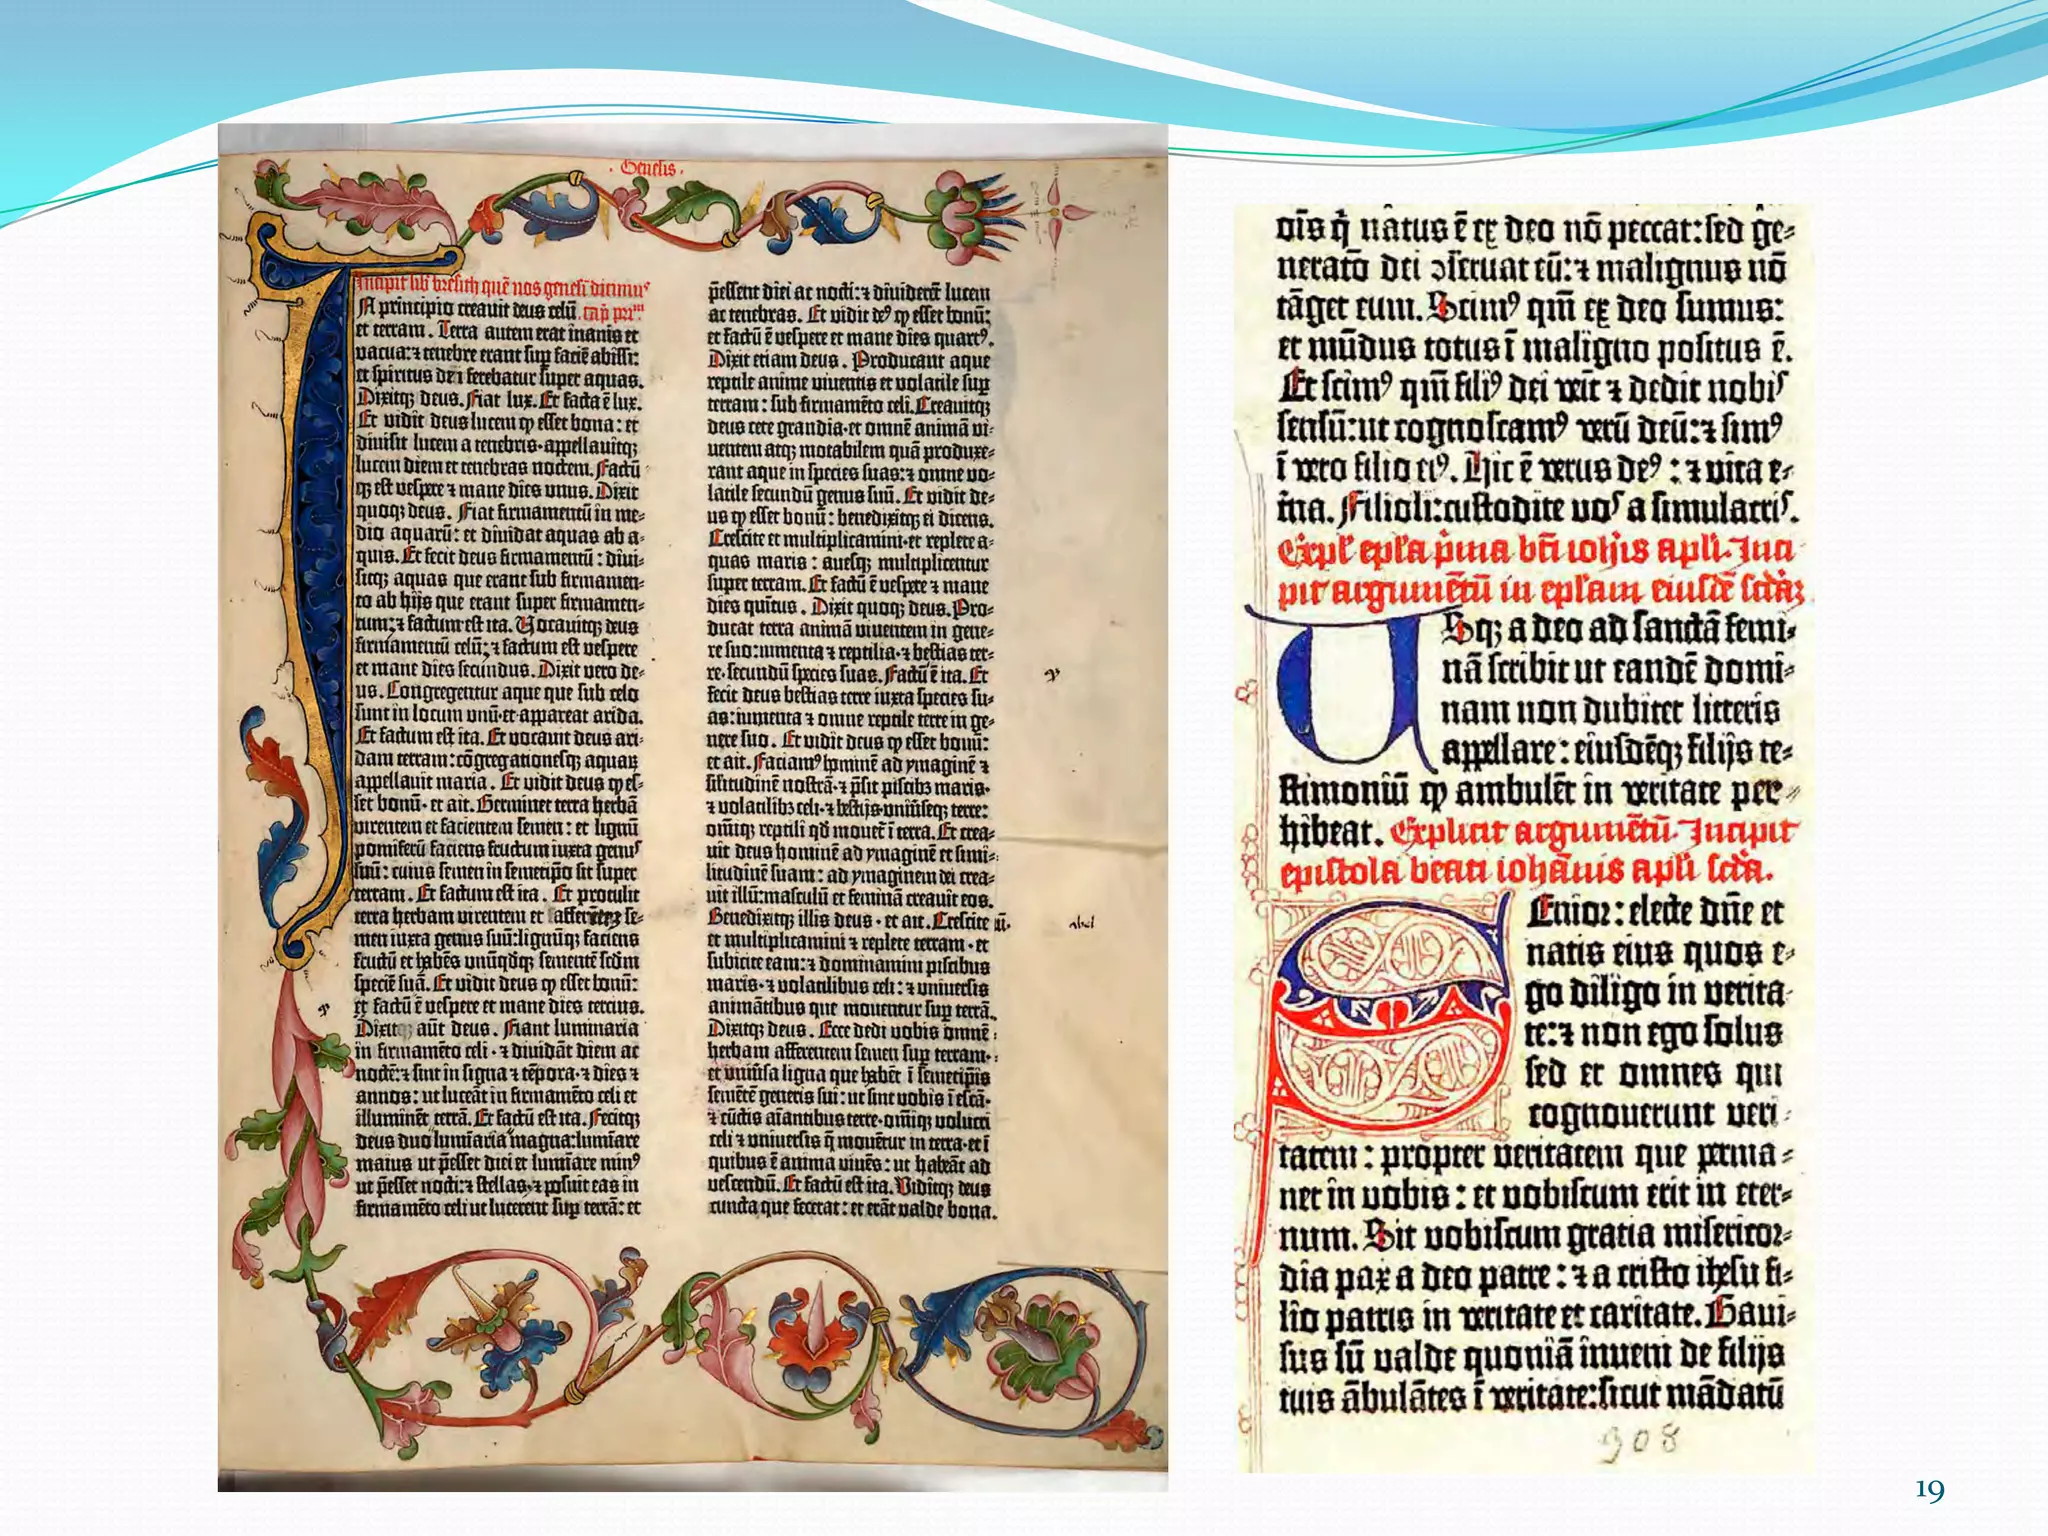 · Genesis ·
Incipit lib̃ bresith quẽ nos genesĩ dicimus
In principio creauit deus celũ .cap̃ primũ
et terram. Terra autem erat inanis et
vacua: ⁊ tenebre erant sup̲ faciẽ abissi:
et spiritus dei ferebatur super aquas.
Dixitqꝫ deus. Fiat lux. Et facta ẽ lux.
Et vidit deus lucem ꝙ esset bona: et
diuisit lucem a tenebris· appellauitqꝫ
lucem diem et tenebras noctem. Factũ
qꝫ est uesꝑe ⁊ mane dies vnus. Dixit
quoqꝫ deus. Fiat firmamentũ in me=
dio aquarũ: et diuidat aquas ab a=
quis. Et fecit deus firmamentũ: diui=
sitqꝫ aquas que erant sub firmamen=
to ab hijs que erant super firmamen=
tum: ⁊ factum est ita. Vocauitqꝫ deus
firmamentũ celũ: ⁊ factum est vespere
et mane dies secundus. Dixit vero de=
us. Congregentur aque que sub celo
sunt in locum vnũ· et appareat arida.
Et factum est ita. Et vocauit deus ari=
dam terram: cõgregationesqꝫ aquaꝝ
appellauit maria. Et vidit deus ꝙ es=
set bonũ· et ait. Germinet terra herbã
virentem et facientem semen: et lignũ
pomiferũ faciens fructum iuxta genus
suũ: cuius semen in semetip̃o sit super
terram. Et factum est ita. Et protulit
terra herbam virentem et se=
men iuxta genus suũ: lignũqꝫ faciens
fructũ et habẽs vnũqd̃qꝫ sementẽ scd̃m
speciẽ suã. Et vidit deus ꝙ esset bonũ:
et factũ ẽ uespere et mane dies tercius.
Dixit aũt deus. Fiant luminaria
in firmamẽto celi· ⁊ diuidãt diem ac
noctẽ: ⁊ sint in signa ⁊ tẽpora· ⁊ dies ⁊
annos: ut luceãt in firmamẽto celi et
illuminẽt terrã. Et factũ est ita. Fecitqꝫ
deus duo lumĩaria magna: lumĩare
maius ut p̃esset diei et lumĩare minꝰ
ut p̃esset nocti: ⁊ stellas· ⁊ posuit eas in
firmamẽto celi ut lucerent sup̲ terrã: et
p̃essent diei ac nocti: ⁊ diuiderẽt lucem
ac tenebras. Et vidit deꝰ ꝙ esset bonũ:
et factũ ẽ uespere et mane dies quartꝰ.
Dixit etiam deus. Producant aque
reptile anime viuentis et volatile sup̲
terram: sub firmamẽto celi. Creauitqꝫ
deus cete grandia· et omnẽ animã vi=
uentem atqꝫ motabilem quã produxe=
rant aque in species suas: ⁊ omne vo=
latile secundũ genus suũ. Et vidit de=
us ꝙ esset bonũ: benedixitqꝫ ei dicens.
Crescite et multiplicamini· et replete a=
quas maris: auesqꝫ multiplicentur
super terram. Et factũ ẽ uesꝑe ⁊ mane
dies quintus. Dixit quoqꝫ deus. Pro=
ducat terra animã viuentem in gene=
re suo: iumenta ⁊ reptilia· ⁊ bestias ter=
re· secundũ species suas. Factũ ẽ ita. Et
fecit deus bestias terre iuxta species su=
as: iumenta ⁊ omne reptile terre in ge=
nere suo. Et vidit deus ꝙ esset bonũ:
et ait. Faciamꝰ hominẽ ad ymaginẽ ⁊
sil̃itudinẽ nostrã· ⁊ p̃sit piscibꝫ maris·
⁊ volatilibꝫ celi· ⁊ bestijs· vniũseqꝫ terre:
om̃iqꝫ reptili qd̃ mouet̃ ĩ terra. Et crea=
uit deus hominẽ ad ymaginẽ et simi=
litudinẽ suam: ad ymaginem dei crea=
uit illũ: masculũ et feminã creauit eos.
Benedixitqꝫ illis deus· et ait. Crescite
et multiplicamini ⁊ replete terram· et
subicite eam: ⁊ dominamini piscibus
maris· ⁊ volatilibus celi: ⁊ vniuersis
animãtibus que mouentur sup̲ terrã.
Dixitqꝫ deus. Ecce dedi vobis omnẽ
herbam afferentem semen sup̲ terram·
et vniũsa ligna que habẽt ĩ semetip̃is
semẽtẽ generis sui: ut sint vobis ĩ escã·
⁊ cũctis aĩantibus terre· om̃iqꝫ volucri
celi ⁊ vniuersis q̃ mouẽtur in terra· et ĩ
quibus ẽ anima viuẽs: ut habeãt ad
vescendũ. Et factũ est ita. Viditqꝫ deus
cuncta que fecerat: et erãt valde bona.
abel
oĩs q̇ natus ẽ ex deo nõ peccat: sed ge=
neratõ dei ↄseruat eũ: ⁊ malignus nõ
tãget eum. Scimꝰ qm̃ ex deo sumus:
et mũdus totus ĩ maligno positus ẽ.
Et scimꝰ qm̃ filiꝰ dei veit ⁊ dedit nobis
sensũ: ut cognoscamꝰ verũ deũ: ⁊ simꝰ
ĩ vero filio eiꝰ. Hic ẽ verus deꝰ: ⁊ vita e=
t̃na. Filioli: custodite vos a simulacris.
Expl̃ epl̃a p̃ma bt̃i ioh̃is apl̃i. Inci
pit argumẽtũ in epl̃am eiusdẽ scd̃aꝫ
Vsqꝫ a deo ad sanctã femi=
nã scribit ut eandẽ domi=
nam non dubitet litteris
appellare: eiusdẽqꝫ filijs te=
stimoniũ ꝙ ambulẽt in veritate per=
hibeat. Explicit argumẽtũ. Incipit
epistola beati iohãnis apl̃i scd̃a.
Senior: electe dñe et
natis eius quos e=
go diligo in verita=
te: ⁊ non ego solus
sed et omnes qui
cognouerunt veri=
tatem: propter veritatem que perma=
net in vobis: et vobiscum erit in eter=
num. Sit vobiscum gratia misericor=
dia pax a deo patre: ⁊ a cristo ihesu fi=
lio patris in veritate et caritate. Gaui=
sus sũ valde quoniã inueni de filijs
tuis ãbulãtes ĩ veritate: sicut mãdatũ
908
19